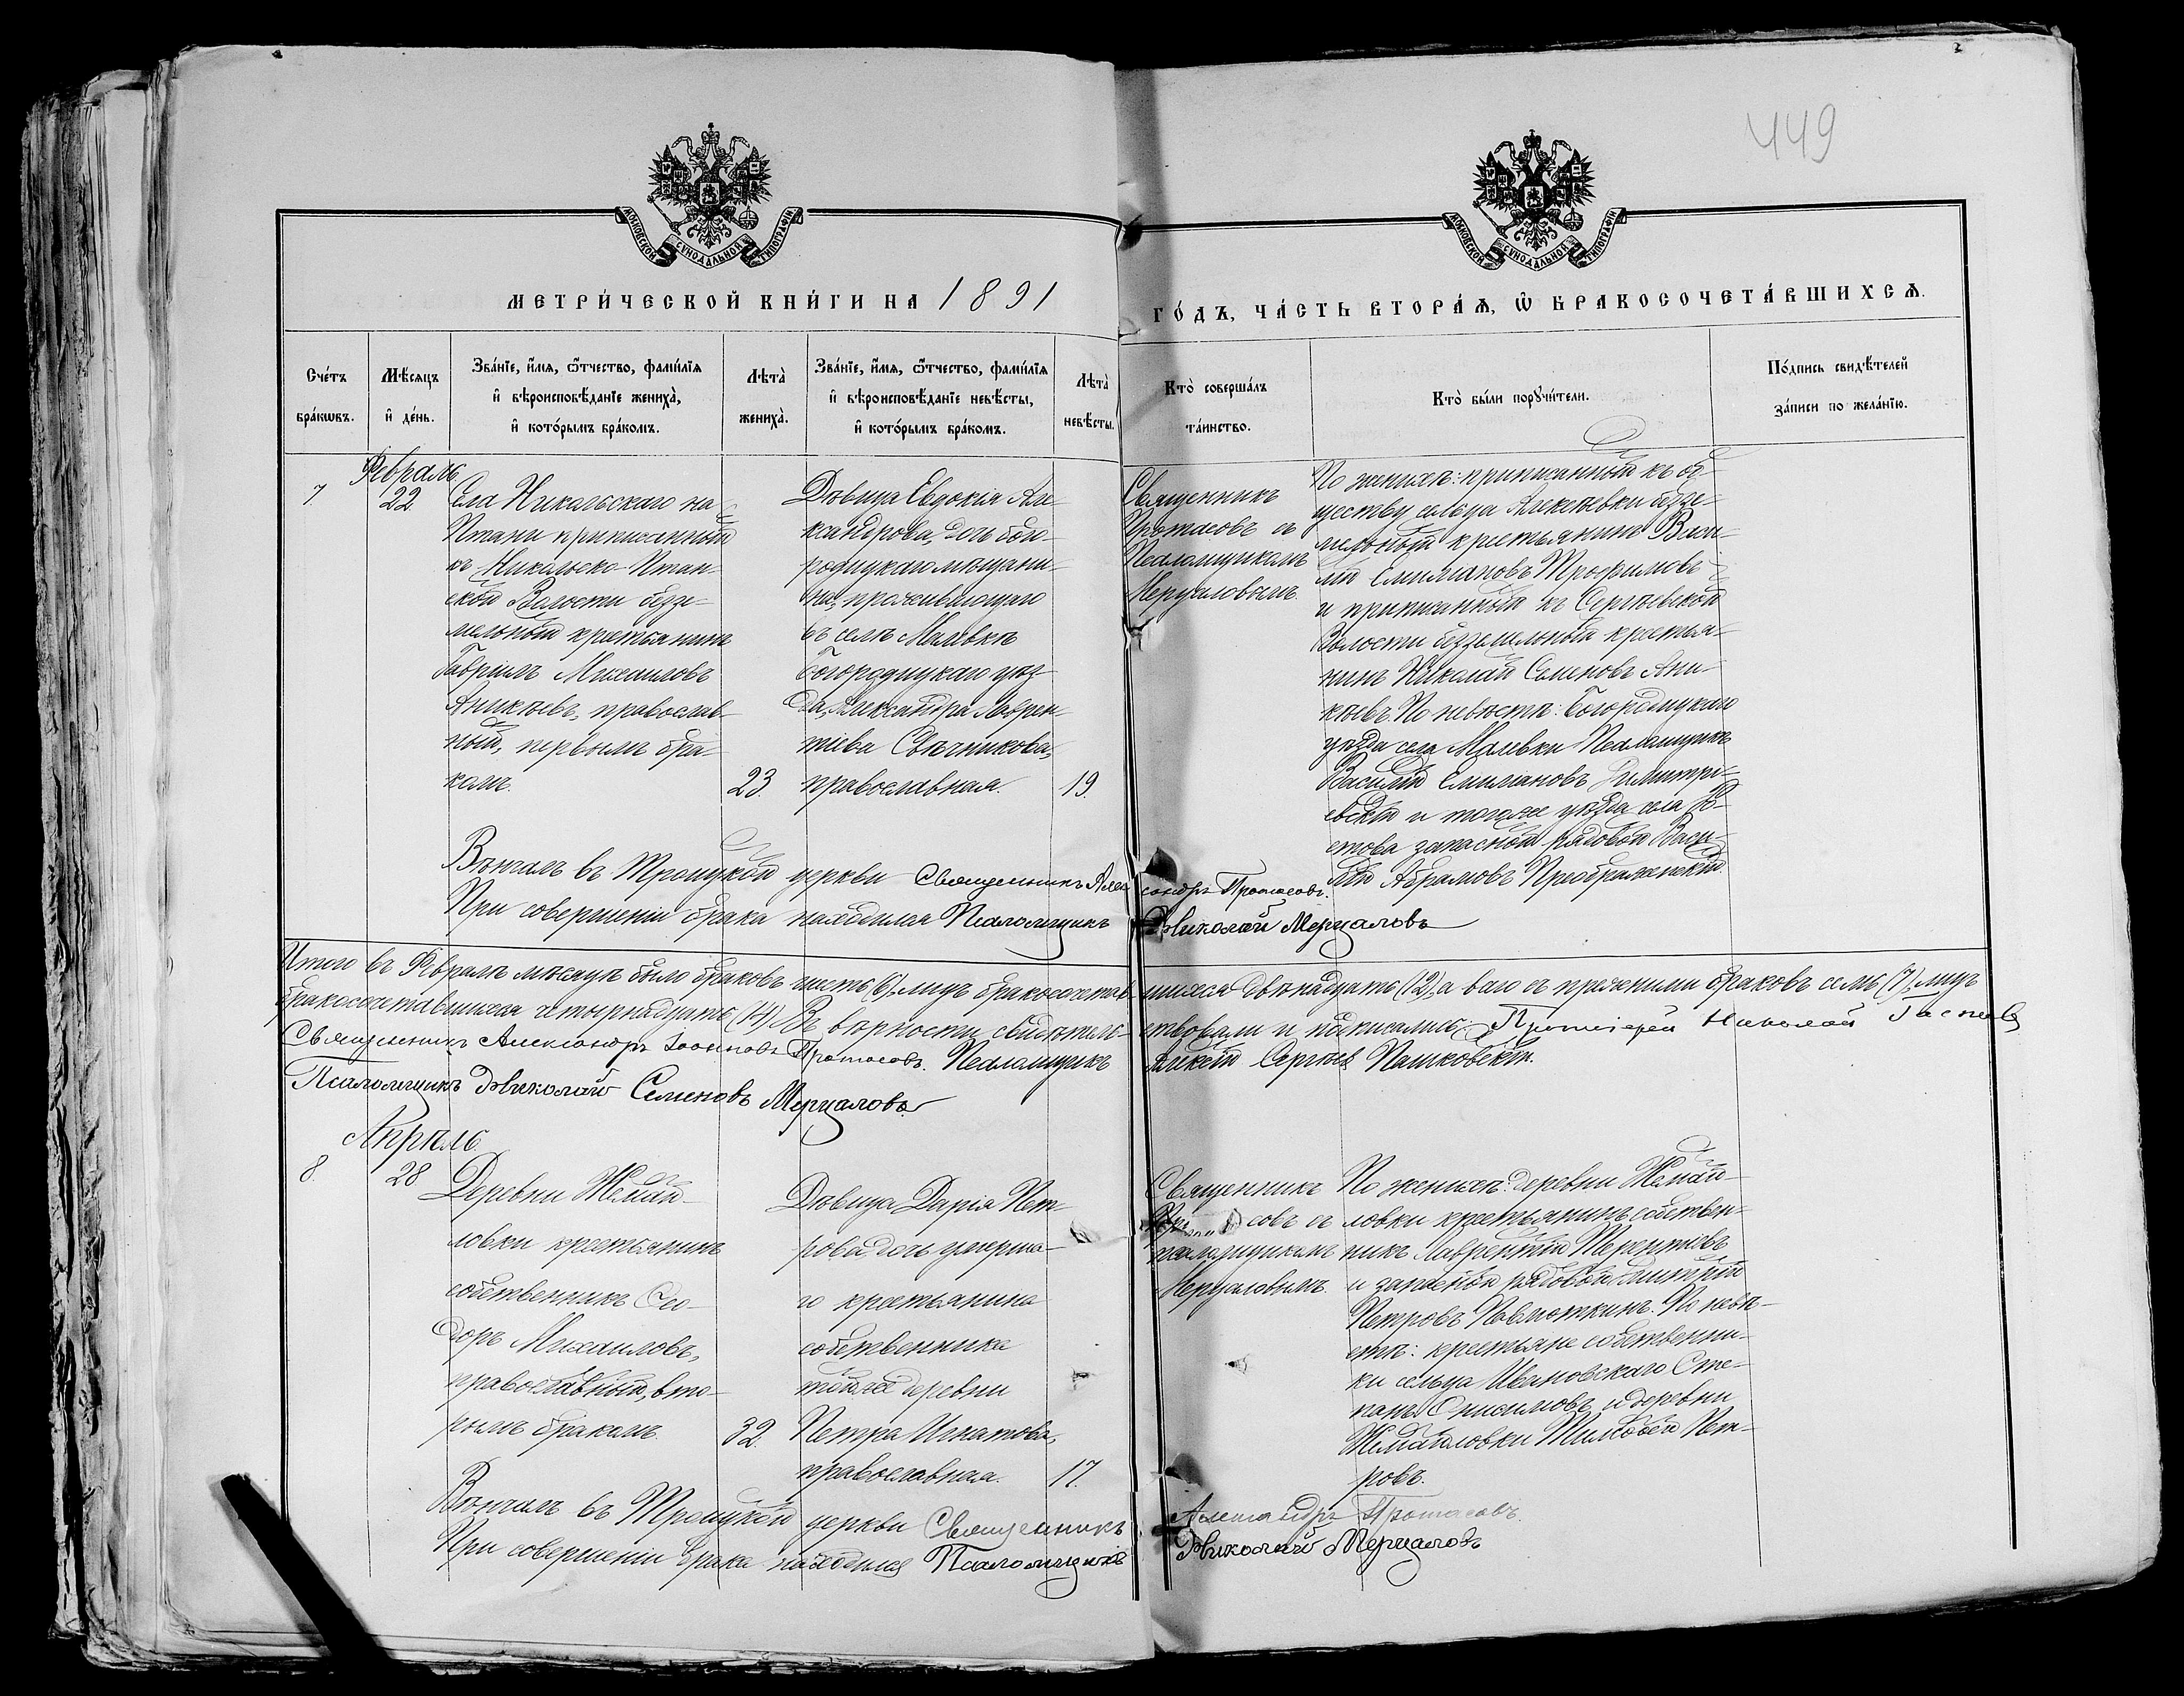 449
МОСКОВСКОЙ СѴНОДАЛЬНОЙ ТИПОГРАФІИ
МОСКОВСКОЙ СѴНОДАЛЬНОЙ ТИПОГРАФІИ
МЕТРИ́ЧЕСКОЙ КНИ́ГИ НА 1891
ГО́ДЪ, ЧА́СТЬ ВТОРА́Ѧ, Ѽ БРАКОСОЧЕТА́ВШИХСѦ.
Сче́тъ бра́кѡвъ.
Мѣ́сяцъ и҆ де́нь.
Зва́нїе, и҆́мя, ѻ҆́тчество, фами́лїя
и҆ вѣроисповѣ́данїе жениха̀,
и҆ кото́рымъ бра́комъ.
Лѣта̀ жениха̀.
Зва́нїе, и҆́мя, ѻ҆́тчество, фами́лїя
и҆ вѣроисповѣ́данїе невѣ́сты,
и҆ кото́рымъ бра́комъ.
Лѣта̀ невѣ́сты.
Кто̀ соверша́лъ
та́инство.
Кто̀ бы́ли порꙋчи́тели.
По́дпись свидѣ́телей
за́писи по жела́нїю.
7.
Февраль
22.
Села Никольскаго на
Птани приписанный
къ Никольско-Птан-
ской Волости беззе-
мельный крестьянинъ
Гавріилъ Михаиловъ
Аникѣевъ, православ-
ный, первымъ бра-
комъ.
23.
Дѣвица Евдокія Але-
ксандрова, дочь бого-
родицкаго мѣщани-
на, проживающаго
въ селѣ Малевкѣ
Богородицкаго уѣз-
да, Александра Лаврен-
тіева Свѣчникова,
православная.
19.
Священникъ
Протасовъ съ
Псаломщикомъ
Мерцаловымъ.
По женихѣ: приписанный къ об-
ществу сельца Алексѣевки беззе-
мельный крестьянинъ Васи-
лій Емиліановъ Трофимовъ
и приписанный къ Сергіевской
Волости безземельный крестья-
нинъ Николай Семеновъ Ани-
кѣевъ. По невѣстѣ: Богородицкаго
уѣзда села Малевки Псаломщикъ
Василій Емиліановъ Димитрі-
евскій и тогоже уѣзда села
запасной рядовой Васи-
лій Абрамовъ Преображенскій.
Вѣнчалъ въ Троицкой церкви Священникъ Александръ Протасовъ.
При совершеніи брака находился Псаломщикъ Николай Мерцаловъ
Итого въ Февралѣ мѣсяцѣ было браковъ шесть (6), лицъ бракосочетавшихся двѣнадцать (12), а всего съ прежними браковъ семь (7), лицъ
бракосочетавшихся четырнадцать (14). Въ вѣрности свидѣтельствовали и подписались: Протоіерей Николай
Священникъ Александръ Іоанновъ Протасовъ. Псаломщикъ Сергѣевъ Пашковскій.
Псаломщикъ Николай Семеновъ Мерцаловъ
Апрѣль.
8.
28
Деревни Жемай-
ловки крестьянинъ
собственникъ Ѳео-
доръ Михаиловъ,
православный, вто-
рымъ бракомъ.
32.
Дѣвица Дарія Пет-
рова дочь умерша-
го крестьянина
собственника
тойже деревни
Петра Игнатова,
православная.
17.
Священникъ
Протасовъ съ
псаломщикомъ
Мерцаловымъ.
По женихѣ: деревни Жемай-
ловки крестьянинъ собствен-
никъ Лаврентій Терентіевъ
и запасной рядовой Димитрій
Петровъ По невѣ-
стѣ: крестьяне собственни-
ки сельца Ивановскаго Сте-
панъ Онисимовъ и деревни
Жемайловки Тимоѳей Пет-
ровъ.
Вѣнчалъ въ Троицкой церкви Священникъ Александръ Протасовъ.
При совершеніи брака находился Псаломщикъ Николай Мерцаловъ